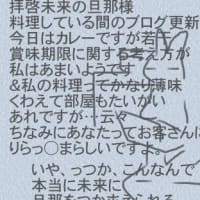 拝啓未来の旦那様
料理している間のブログ更新
今日はカレーですが若干
賞味期限に関する考え方が
私はあまいようです
&私の料理ってかなり薄味
くわえて部屋もたいがい
あれですが…云々
ちなみにあなたってお客さんに
りらっ○まらしいですよ。
いや、っつか、こんなんで
本当に未来に
旦那をつかまえられる